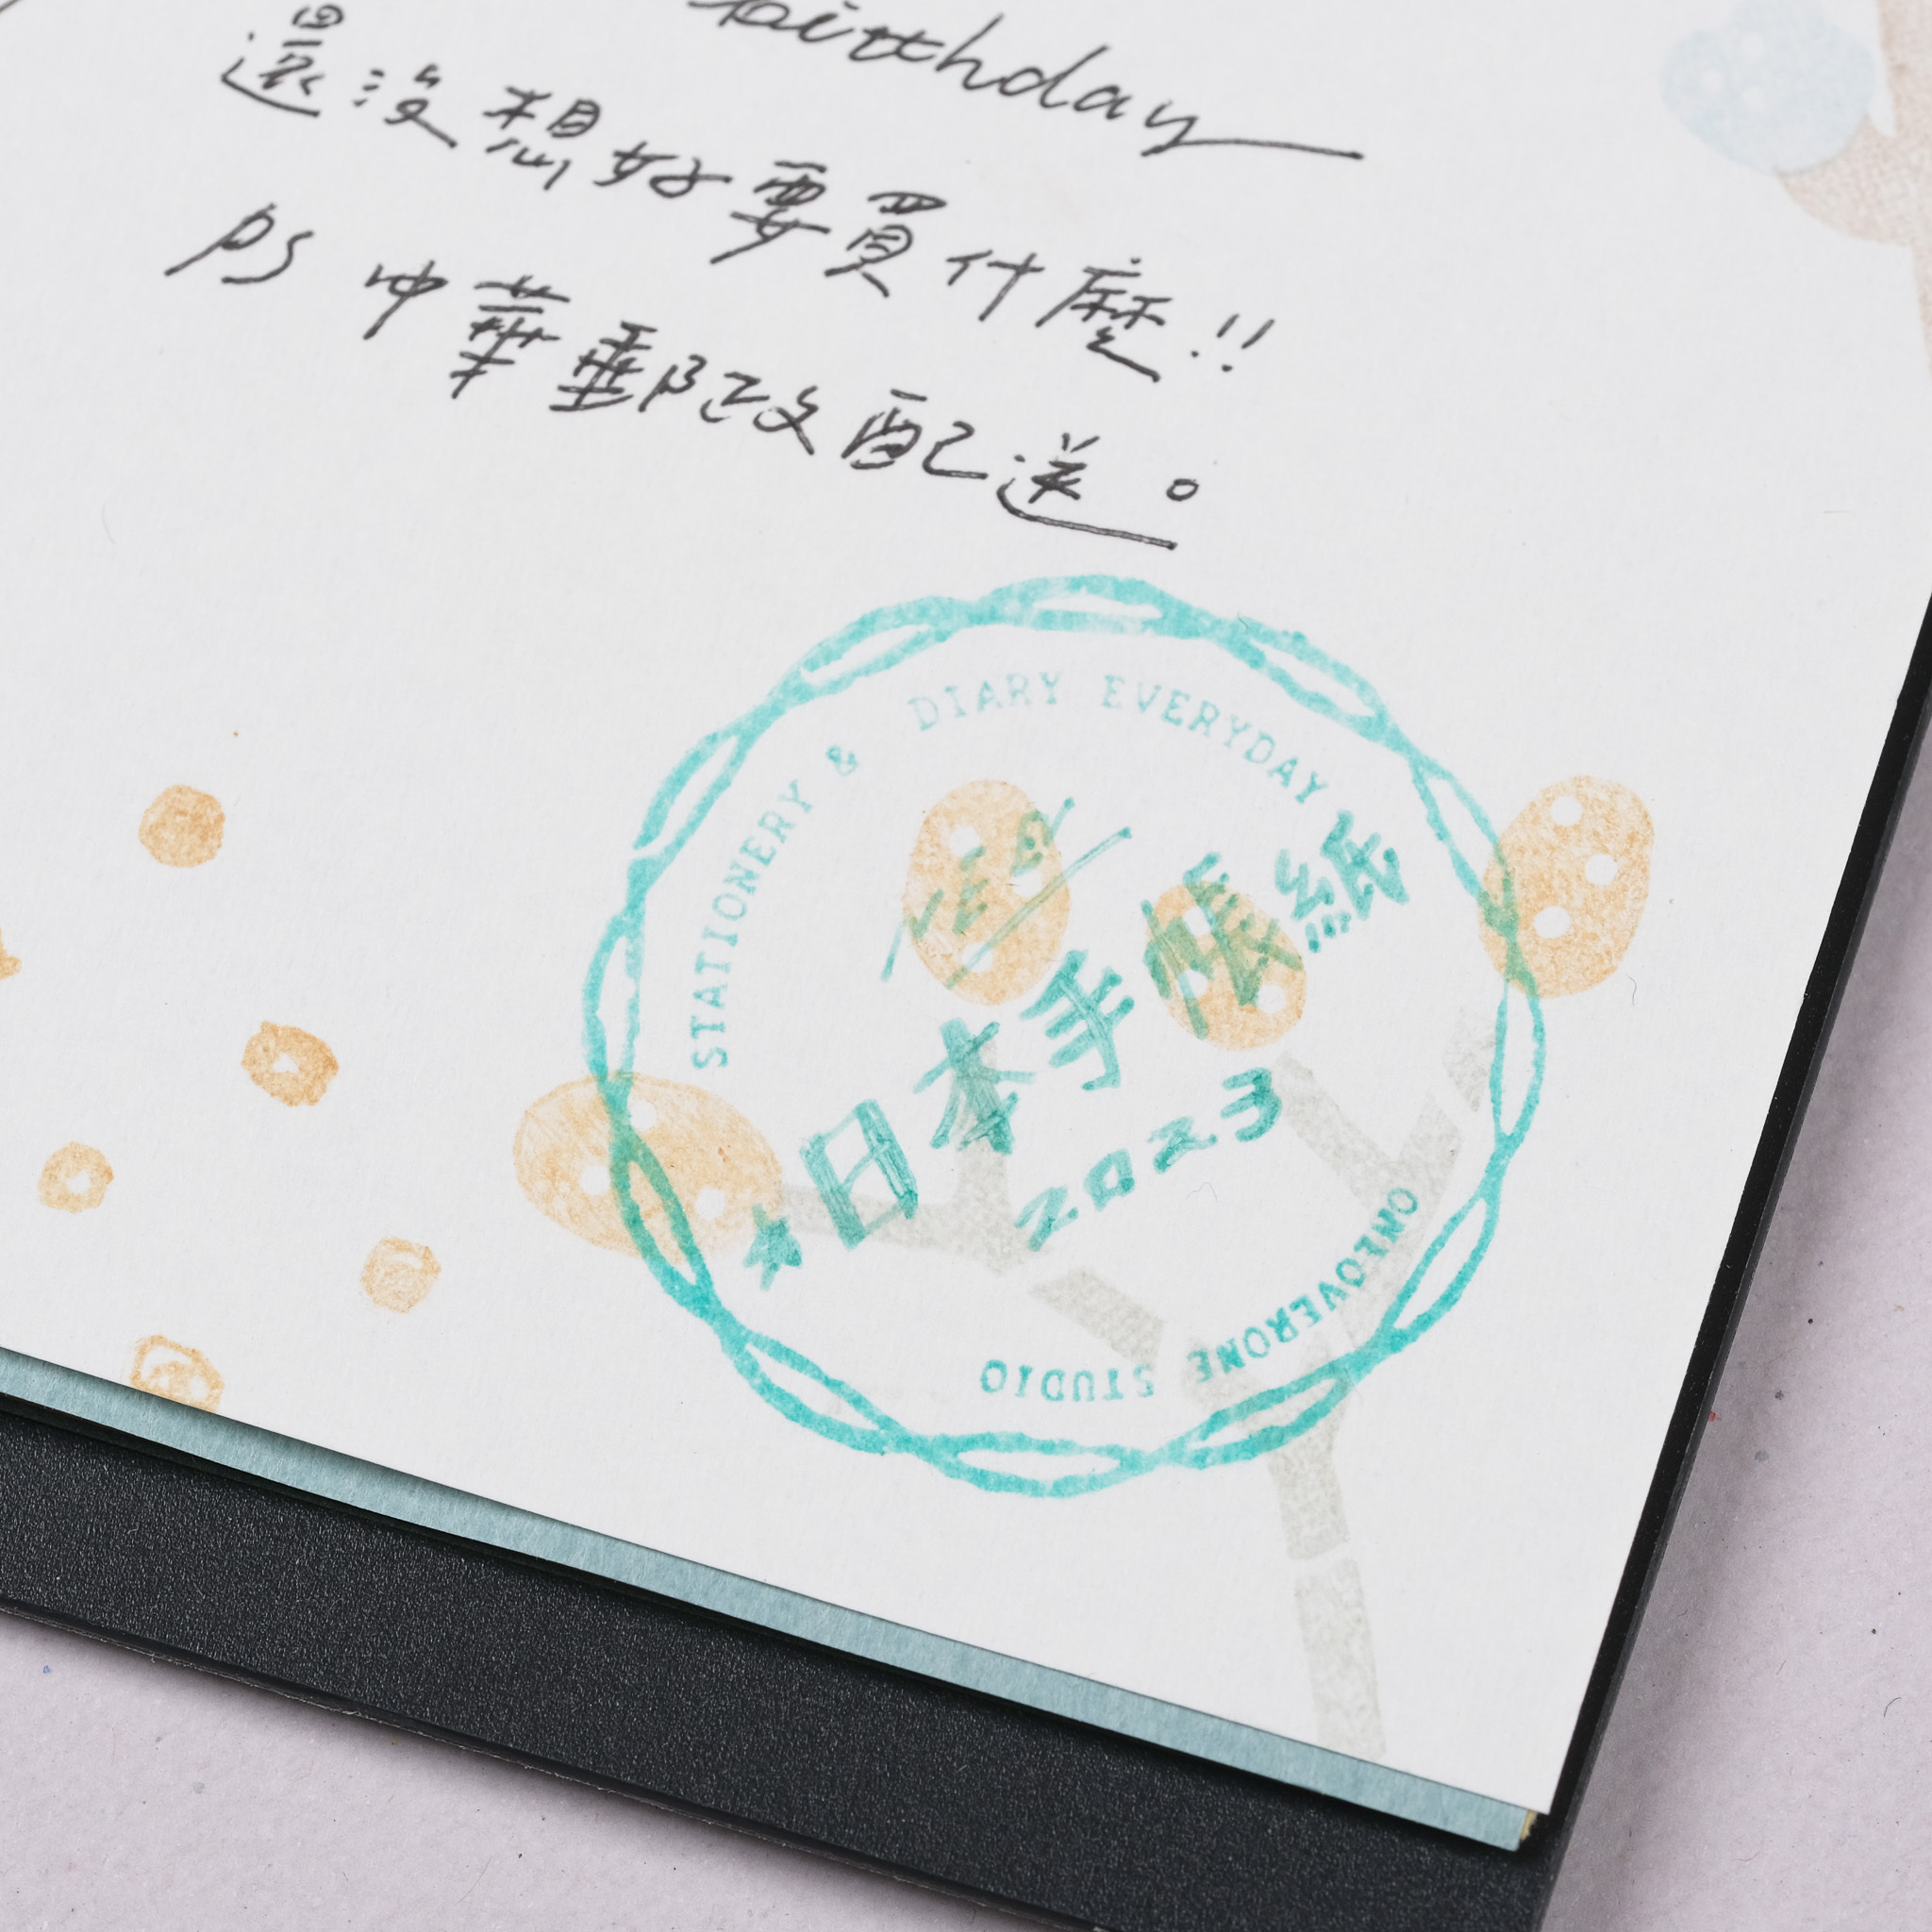 birthday
還沒想好要買什麼!!
PS 中華郵政配送。
STATIONERY & DIARY EVERYDAY
★日本手帳紙
2023
ONEOVERONE STUDIO